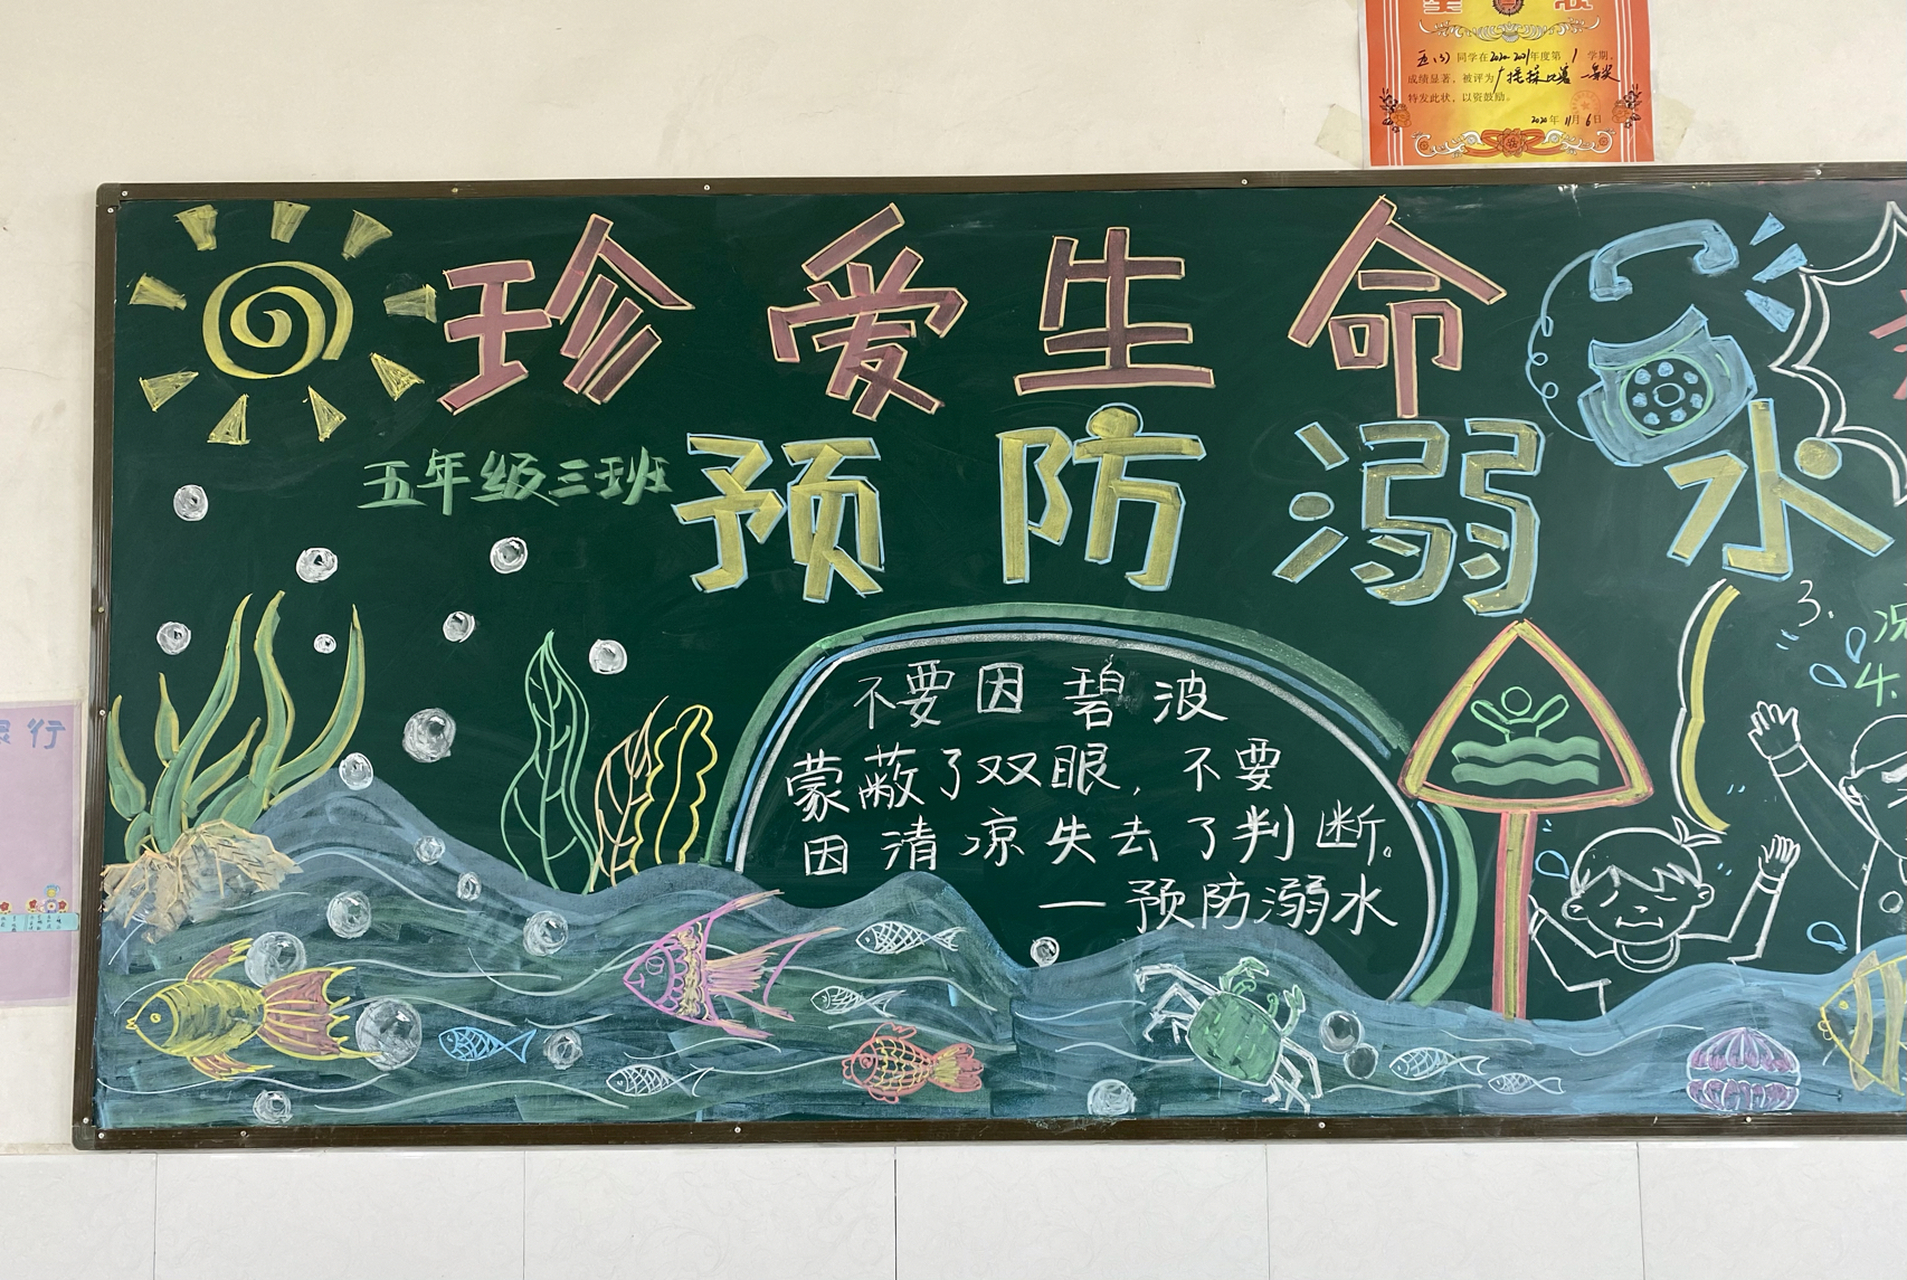 五(3)同学在2020-2021年度第1学期,
成绩显著,被评为广播操比赛一等奖
特发此状,以资鼓励。
2020年11月6日
珍爱生命
五年级三班
预防溺水
不要因碧波
蒙蔽了双眼,不要
因清凉失去了判断。
—预防溺水
3.
况
4.
行